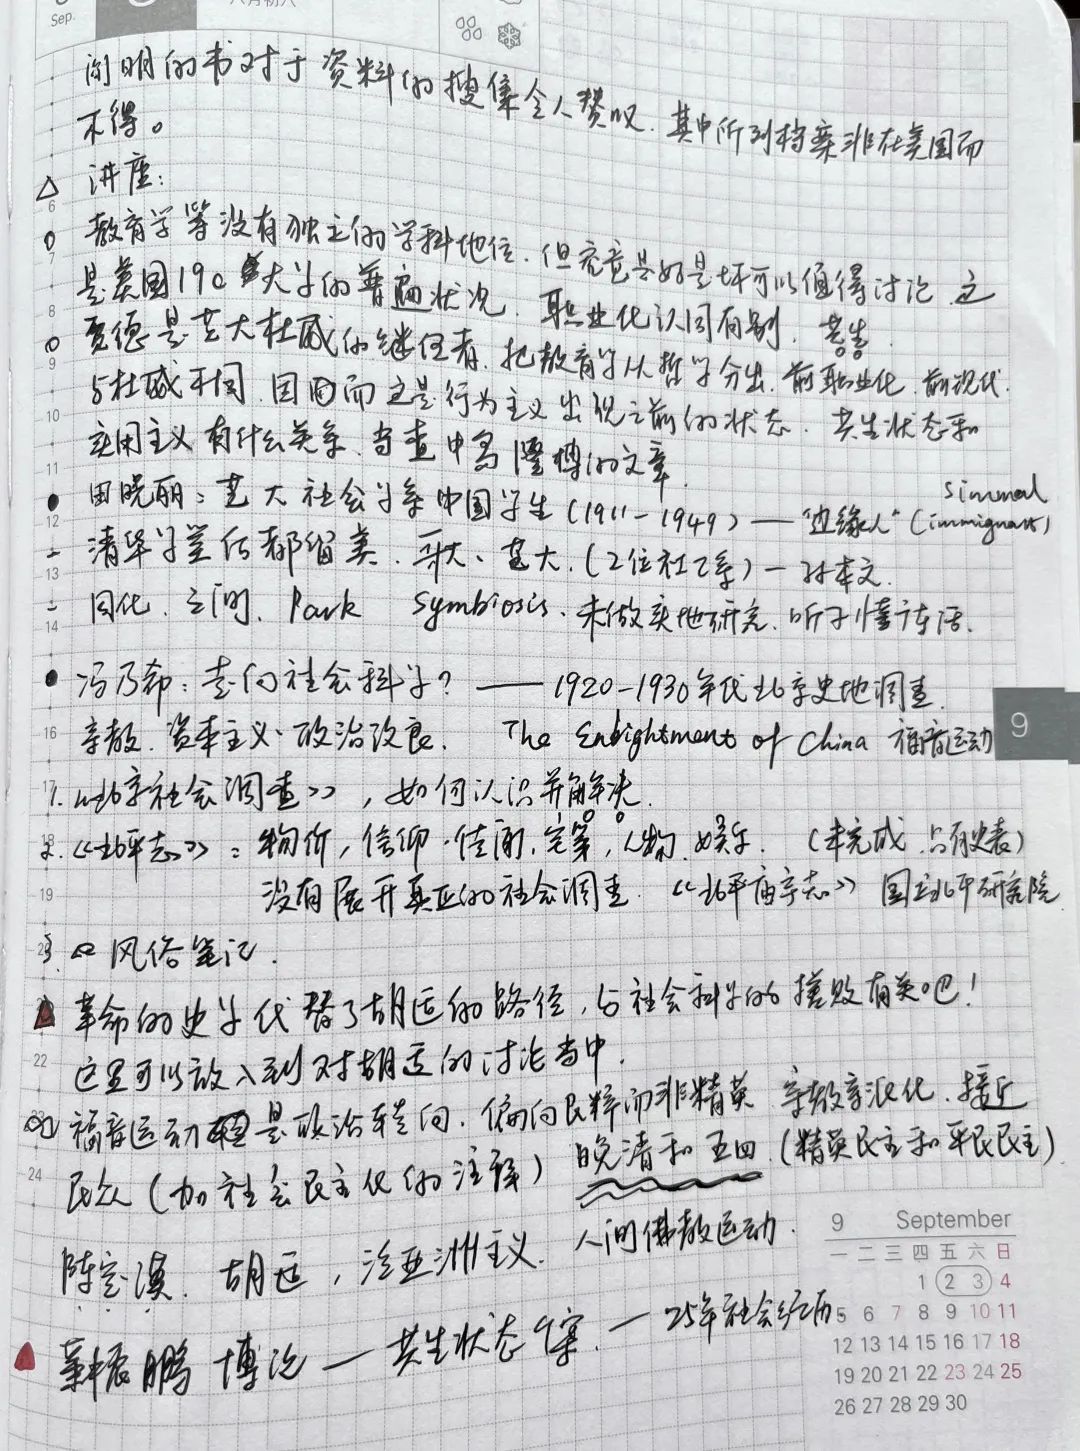 Sep.
八月初八
的书对于资料的搜集令人赞叹.其中所列档案非在美国而
不得。
讲座:
教育学等没有独立的学科地位.但究竟是好是坏可以值得讨论.这
是美国190 大学的普遍状况.职业化认同有别.共生
是芝大杜威的继任者.把教育学从哲学分出.前职业化 前现代.
与杜威不同.因而这是行为主义出现之前的状态.共生状态和
实用主义有什么关系.当查 的文章.
Simmal
田晓丽:芝大社会学系中国学生(1911-1949)—"边缘人"(immignant)
清华学堂后都留美.哥大、芝大.(2位社工系)—孙本文.
同化.之间.Park Symbiosis.未做实地研究.听不懂广东话.
冯乃希:走向社会科学?——1920-1930年代北京史地调查.
宗教.资本主义.政治改良. The Enlightment of China 福音运动
1.《北京社会调查》,如何认识并解决.
2.《北平志》:物价,信仰. ,人物.娱乐.(未完成.只有史表)
没有展开真正的社会调查.《北平庙宇志》国立北平研究院.
3. 风俗笔记.
革命的史学代替了胡适的路径,与社会科学的挫败有关吧!
这里可以放入到对胡适的讨论当中.
福音运动 是政治转向.偏向民粹而非精英 宗教宗派化.接近
民众(加社会民主化的注释) 晚清和五四.(精英民主和平民民主)
陈 .胡适,泛亚洲主义.人间佛教运动.
鹏 博论—共生状态 .—25年社会经历.
9
9 September
一 二 三 四 五 六 日
1 2 3 4
5 6 7 8 9 10 11
12 13 14 15 16 17 18
19 20 21 22 23 24 25
26 27 28 29 30